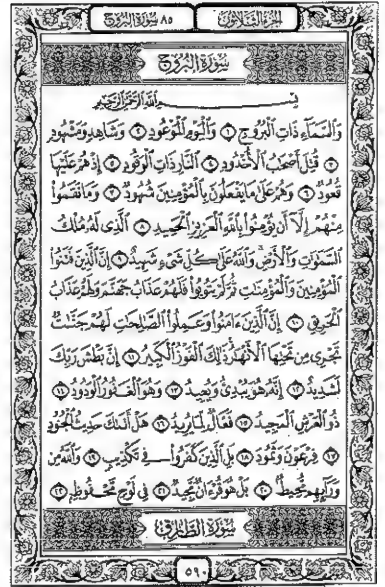 الجزء الثلاثون
٨٥ سورة البروج
سورة البروج
بسم الله الرحمن الرحيم
وَالسَّمَاءِ ذَاتِ الْبُرُوجِ ١ وَالْيَوْمِ الْمَوْعُودِ ٢ وَشَاهِدٍ وَمَشْهُودٍ
٣ قُتِلَ أَصْحَٰبُ الْأُخْدُودِ ٤ النَّارِ ذَاتِ الْوَقُودِ ٥ إِذْ هُمْ عَلَيْهَا
قُعُودٌ ٦ وَهُمْ عَلَىٰ مَا يَفْعَلُونَ بِالْمُؤْمِنِينَ شُهُودٌ ٧ وَمَا نَقَمُوا
مِنْهُمْ إِلَّا أَن يُؤْمِنُوا بِاللَّهِ الْعَزِيزِ الْحَمِيدِ ٨ الَّذِي لَهُ مُلْكُ
السَّمَٰوَٰتِ وَالْأَرْضِ وَاللَّهُ عَلَىٰ كُلِّ شَيْءٍ شَهِيدٌ ٩ إِنَّ الَّذِينَ فَتَنُوا
الْمُؤْمِنِينَ وَالْمُؤْمِنَٰتِ ثُمَّ لَمْ يَتُوبُوا فَلَهُمْ عَذَابُ جَهَنَّمَ وَلَهُمْ عَذَابُ
الْحَرِيقِ ١٠ إِنَّ الَّذِينَ ءَامَنُوا وَعَمِلُوا الصَّٰلِحَٰتِ لَهُمْ جَنَّٰتٌ
تَجْرِي مِن تَحْتِهَا الْأَنْهَٰرُ ذَٰلِكَ الْفَوْزُ الْكَبِيرُ ١١ إِنَّ بَطْشَ رَبِّكَ
لَشَدِيدٌ ١٢ إِنَّهُ هُوَ يُبْدِئُ وَيُعِيدُ ١٣ وَهُوَ الْغَفُورُ الْوَدُودُ ١٤
ذُو الْعَرْشِ الْمَجِيدُ ١٥ فَعَّالٌ لِّمَا يُرِيدُ ١٦ هَلْ أَتَىٰكَ حَدِيثُ الْجُنُودِ
١٧ فِرْعَوْنَ وَثَمُودَ ١٨ بَلِ الَّذِينَ كَفَرُوا فِي تَكْذِيبٍ ١٩ وَاللَّهُ مِن
وَرَائِهِم مُّحِيطٌ ٢٠ بَلْ هُوَ قُرْءَانٌ مَّجِيدٌ ٢١ فِي لَوْحٍ مَّحْفُوظٍ ٢٢
سورة الطارق
٥٩٠